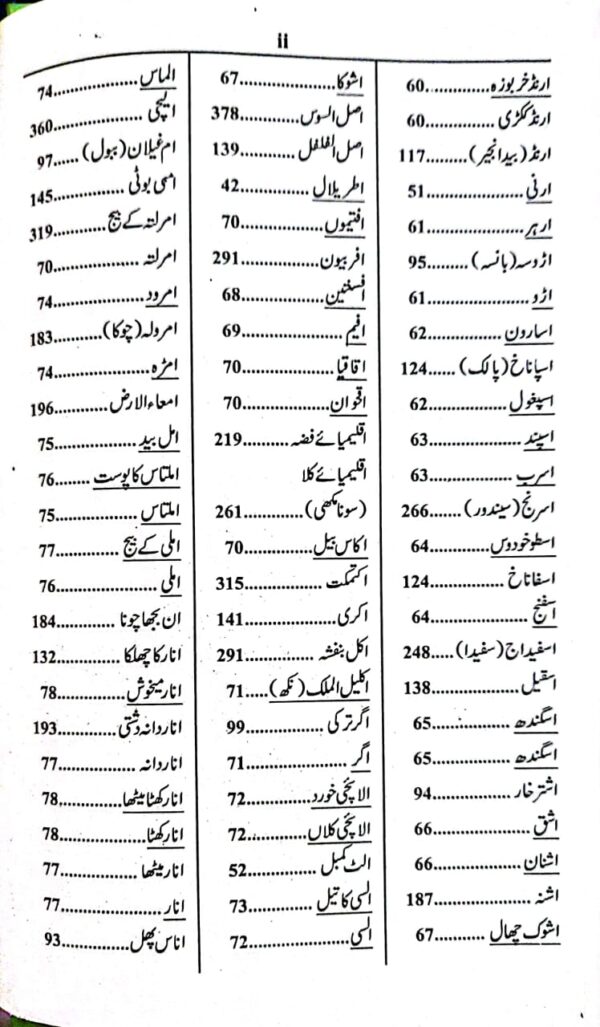 ii
ارنڈ خربوزہ..............60
ارنڈ ککڑی..............60
ارنڈ (بیدانجیر).........117
ارنی..............51
ارہر..............61
اڑوسہ (بانسہ).........95
اڑو..............61
اسارون..............62
اسپاناخ (پالک)......124
اسپغول..............62
اسپند..............63
اسرب..............63
اسرنج (سیندور).......266
اسطوخودوس..........64
اسفاناخ..............124
اسفنج..............64
اسفیداج (سفیدا).....248
اسقیل..............138
اسگندھ..............65
اسگندھ..............65
اشترخار..............94
اشق..............66
اشنان..............66
اشنہ..............187
اشوک چھال..........67
اشوکا..............67
اصل السوس..........378
اصل الفلفل..........139
اطریلال..............42
افتیموں..............70
افربیون..............291
افسنتین..............68
افیم..............69
اقاقیا..............70
اقحوان..............70
اقلیمیائے فضہ.........219
اقلیمیائے کلا
(سونا مکھی)..........261
اکاس بیل..............70
اکتمکت..............315
اکری..............141
اکل بنفشہ............291
اکلیل الملک (نکھ).....71
اگر ترکی..............99
اگر..............71
الائچی خورد..........72
الائچی کلاں..........72
الٹ کمبل..............52
السی کا تیل............73
السی..............72
الماس..............74
ایلچی..............360
ام غیلان (ببول).....97
امسی بوٹی............145
امرلتہ کے بیج..........319
امرلتہ..............70
امرود..............74
امرولہ (چوکا).........183
امڑہ..............74
امعاء الارض..........196
امل بید..............75
املتاس کا پوست........76
املتاس..............75
املی کے بیج............77
املی..............76
ان بجھا چونا..........184
انار کا چھلکا..........132
انار میخوش............78
انار دانہ دشتی.........193
انار دانہ..............77
انار کھٹا میٹھا..........78
انار کھٹا..............78
انار میٹھا..............77
انار..............77
اناس پھل............93